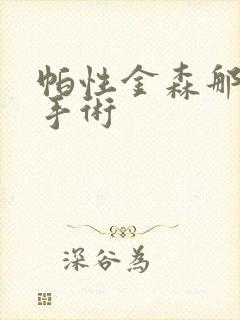 帕性金森
手術
深谷為